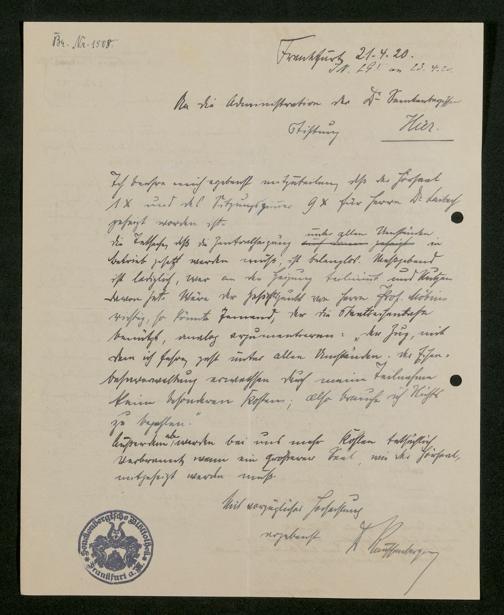 Br. Nr. 1508.
Frankfurt, 21.4.20.
An die Administration der Dr. Senckenbergischen
Stiftung
Hier.
Ich beehre mich ergebenst mitzuteilen, dass der Hörsaal
1 x und das Sitzungszimmer 9 x für Herrn Dr.
geheizt worden ist.
Die Tatsache, dass die Zentralheizung unter allen Umständen in
Betrieb gesetzt werden muss, ist belanglos. Massgebend
ist lediglich, wer an der Heizung teilnimmt und Nutzen
davon hat. Wäre der Gesichtspunkt von Herrn Prof. Möbius
richtig, so könnte Jemand, der die Eisenbahn
benützt, analog argumentieren: "Der Zug, mit
dem ich fahre, geht unter allen Umständen. Der Eisen-
bahnverwaltung erwachsen durch meine Teilnahme
keine besonderen Kosten; also brauche ich Nichts
zu bezahlen."
Ausserdem aber werden bei uns mehr Kohlen tatsächlich
verbrannt, wenn ein grösserer Saal, wie der Hörsaal,
mitgeheizt werden muss.
Mit vorzüglicher Hochachtung
ergebenst
Senckenbergische Bibliothek
Frankfurt a. M.